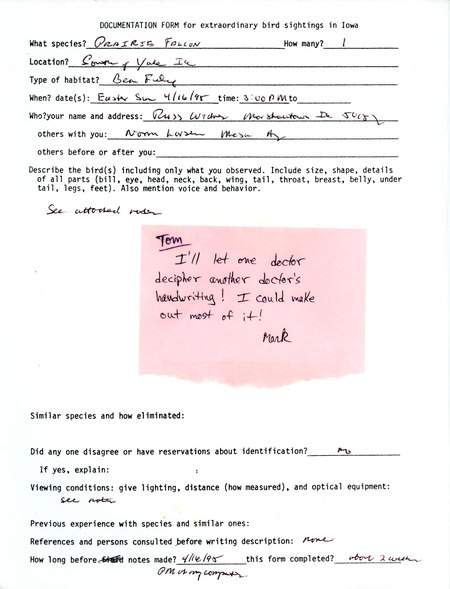 DOCUMENTATION FORM for extraordinary bird sightings in Iowa
What species? PRAIRIE FALCON How many? 1
Location? South of Yale Ia
Type of habitat? Bean Field
When? date(s): Easter Sun 4/16/95 time: 3:00 PM to
Who? your name and address: Russ Widner Marshalltown Ia
others with you: Norm Larson Mesa Az
others before or after you:
Describe the bird(s) including only what you observed. Include size, shape, details
of all parts (bill, eye, head, neck, back, wing, tail, throat, breast, belly, under
tail, legs, feet). Also mention voice and behavior.
See attached
Tom
I'll let one doctor
decipher another doctor's
handwriting! I could make
out most of it!
Mark
Similar species and how eliminated:
Did any one disagree or have reservations about identification? no
If yes, explain:
Viewing conditions: give lighting, distance (how measured), and optical equipment:
see note
Previous experience with species and similar ones:
References and persons consulted before writing description: none
How long before notes made? 4/16/95 this form completed? about 2 weeks
PM on my computer